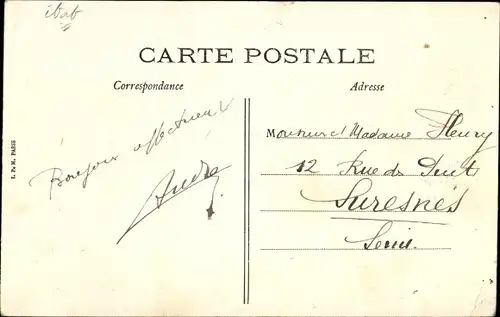 CARTE POSTALE
Correspondance
Adresse
Bonjour affectueux
André
Monsieur et Madame Fleury
12 Rue du
Suresnes
Seine
I. P. M. PARIS